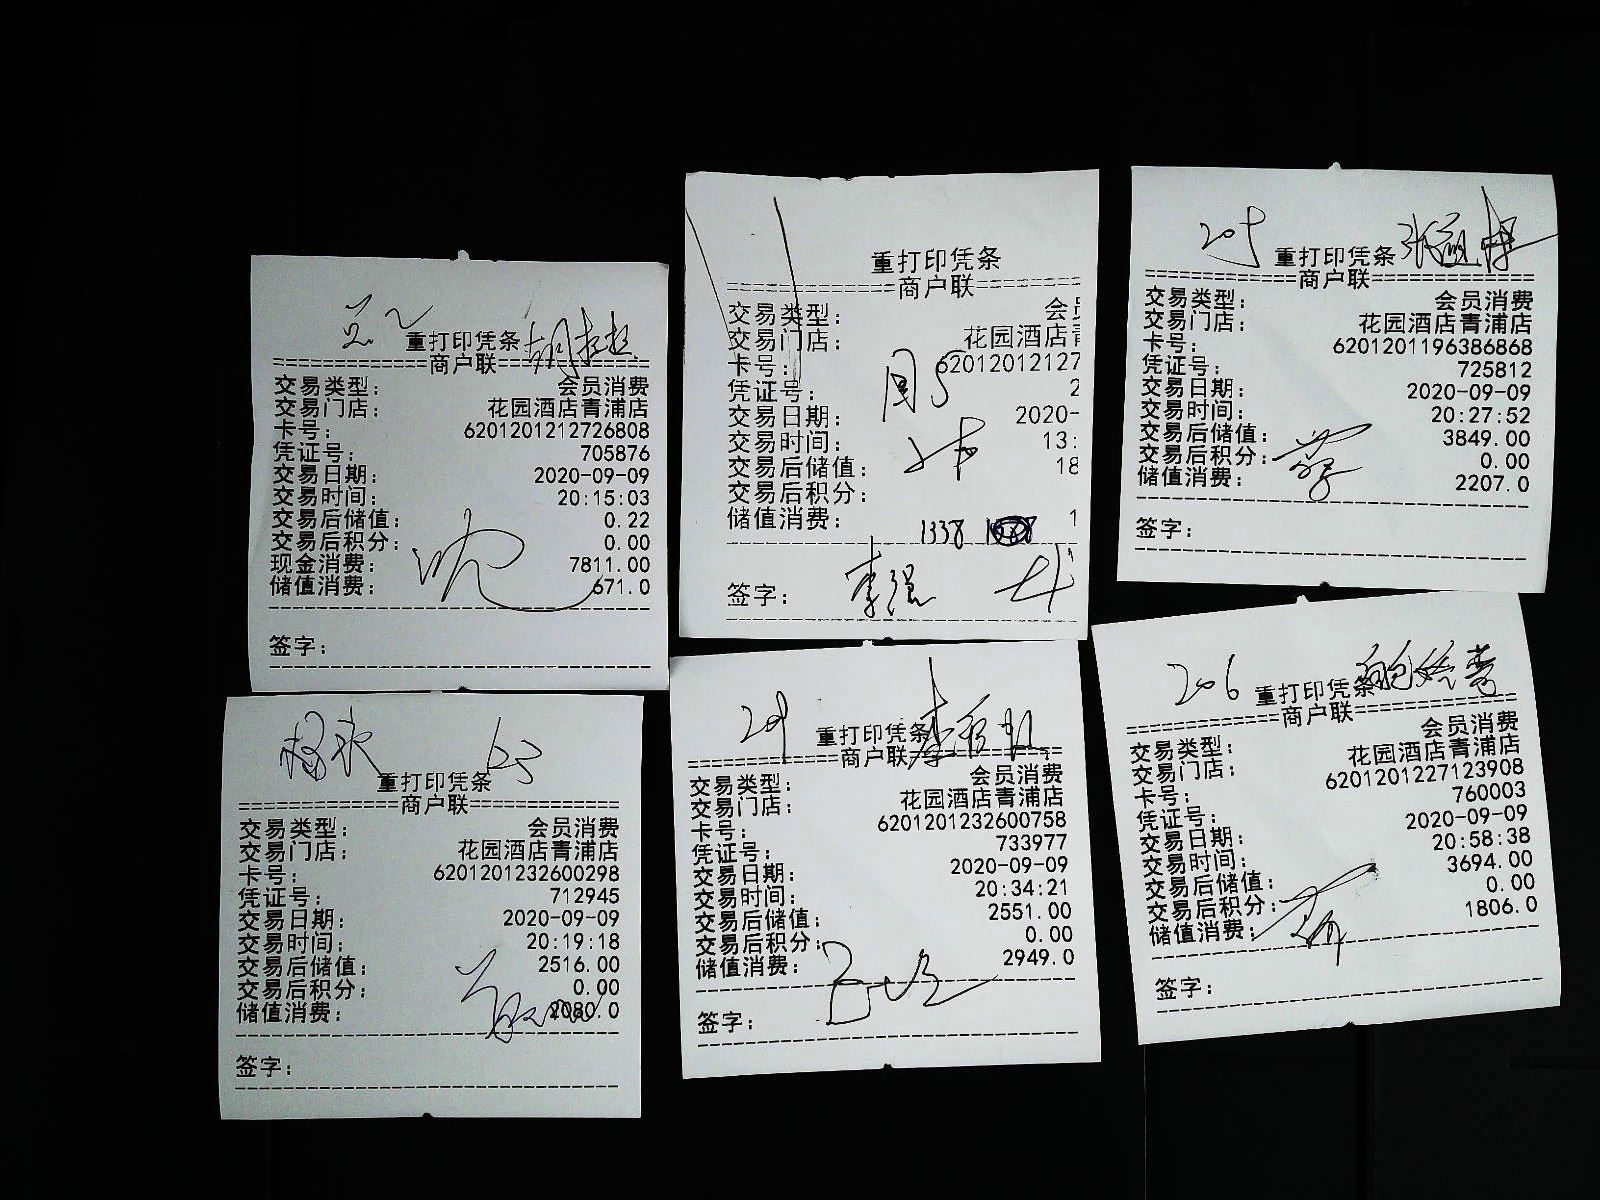 重打印凭条
商户联
交易类型: 会员消费
交易门店: 花园酒店青浦店
卡号: 6201201212726808
凭证号: 705876
交易日期: 2020-09-09
交易时间: 20:15:03
交易后储值: 0.22
交易后积分: 0.00
现金消费: 7811.00
储值消费: 671.0
签字:
重打印凭条
商户联
交易类型: 会
交易门店: 花园酒店
卡号: 62012012127
凭证号: 2
交易日期: 2020-
交易时间: 13:
交易后储值: 18
交易后积分:
储值消费: 1
1338
签字: 李强
205 重打印凭条
商户联
交易类型: 会员消费
交易门店: 花园酒店青浦店
卡号: 6201201196386868
凭证号: 725812
交易日期: 2020-09-09
交易时间: 20:27:52
交易后储值: 3849.00
交易后积分: 0.00
储值消费: 2207.0
签字:
杨永
重打印凭条
商户联
交易类型: 会员消费
交易门店: 花园酒店青浦店
卡号: 6201201232600298
凭证号: 712945
交易日期: 2020-09-09
交易时间: 20:19:18
交易后储值: 2516.00
交易后积分: 0.00
储值消费: 2080.0
签字:
重打印凭条
商户联
交易类型: 会员消费
交易门店: 花园酒店青浦店
卡号: 6201201232600758
凭证号: 733977
交易日期: 2020-09-09
交易时间: 20:34:21
交易后储值: 2551.00
交易后积分: 0.00
储值消费: 2949.0
签字:
206 重打印凭条
商户联
交易类型: 会员消费
交易门店: 花园酒店青浦店
卡号: 6201201227123908
凭证号: 760003
交易日期: 2020-09-09
交易时间: 20:58:38
交易后储值: 3694.00
交易后积分: 0.00
储值消费: 1806.0
签字: